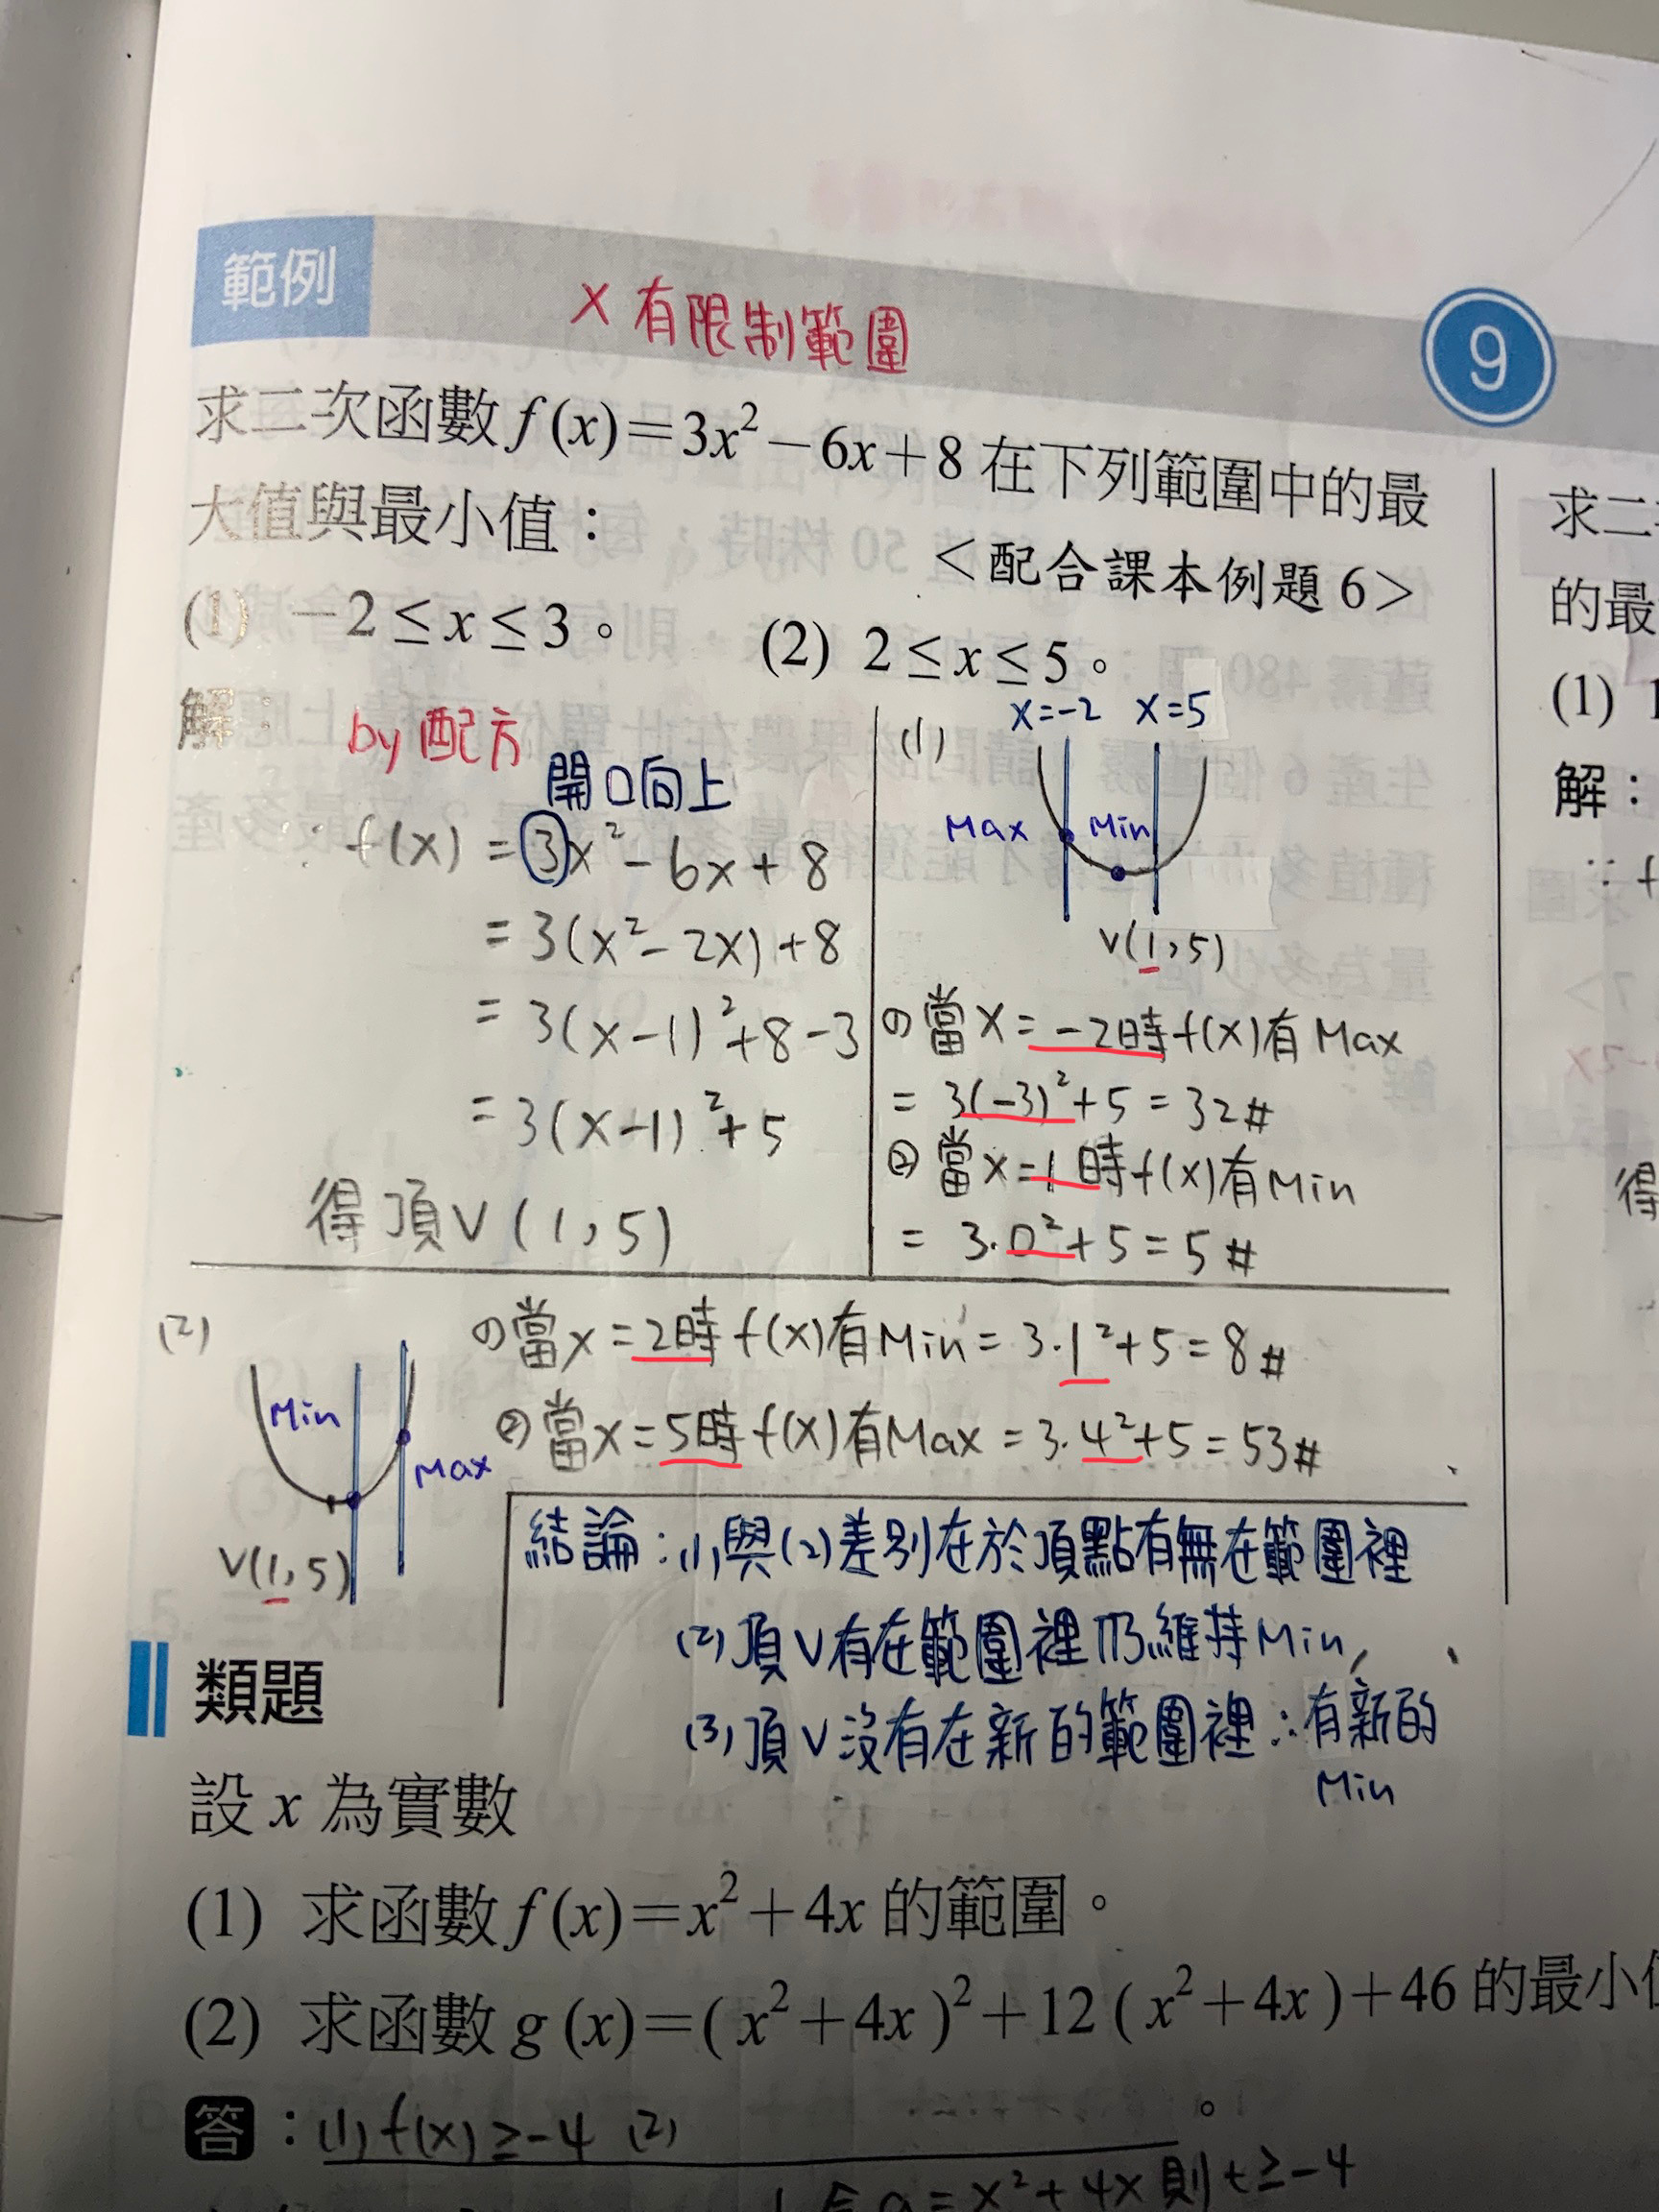 範例
x 有限制範圍
9
求二次函數 f(x)=3x²-6x+8 在下列範圍中的最
大值與最小值：
<配合課本例題 6>
(1) -2≤x≤3。
(2) 2≤x≤5。
解：
by 配方
開口向上
f(x) = 3x²-6x+8
= 3(x²-2x)+8
= 3(x-1)²+8-3
= 3(x-1)²+5
得頂V(1,5)
(1)
x=-2 x=5
Max Min
V(1,5)
① 當x=-2時f(x)有Max
= 3(-3)²+5=32#
② 當x=1時f(x)有Min
= 3·0²+5=5#
(2)
Min
Max
V(1,5)
① 當x=2時f(x)有Min=3·1²+5=8#
② 當x=5時f(x)有Max=3·4²+5=53#
結論：(1)與(2)差別在於頂點有無在範圍裡
(2)頂V有在範圍裡仍維持Min,
(3)頂V沒有在新的範圍裡∴有新的
Min
類題
設 x 為實數
(1) 求函數 f(x)=x²+4x 的範圍。
(2) 求函數 g(x)=(x²+4x)²+12(x²+4x)+46 的最小
答：(1)f(x)≥-4 (2) 。
a=x²+4x則t≥-4
求二
的最
(1) 1
解：
∵ f
得